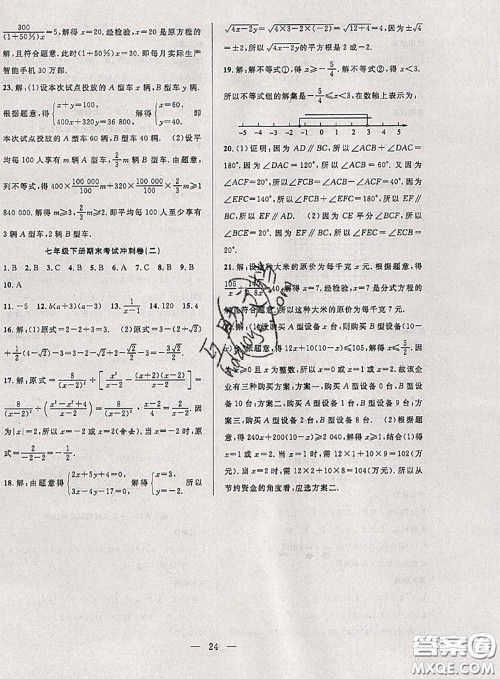 300/(1+50%)x=20,解得x=20.经检验,x=20是原方程的
解,且符合题意. (1+50%)x=30.即每月实际生产
智能手机30万部.
23.解:(1)设本次试点投放的A型车x辆,B型车y辆.
根据题意,得{x+y=100, 400x+320y=36800. 解得{x=60, y=40. 答:
本次试点投放A型车60辆,B型车40辆. (2)设平
均每100人享有m辆A型车,2/3m辆B型车.由题意,
列不等式,得400×100000/100m+320×100000/100×2/3m≥1
840000.解得m≥3,2/3m≥2.即平均每100人至少享有
3辆A型车,2辆B型车.
七年级下册期末考试冲刺卷(二)
1.B 2.B 3.C 4.D 5.A 6.B 7.A 8.B 9.A
10.A
11.-5 12.b(a+3)(a-3) 13.1/(x+1) 14.15 15.√7
16.解:(1)原式=2-2+3=3. (2)原式=-√2-2
+1/2(4-2)-2=-√2-2+1-2=-√2-3.
18.解:由题意得{2x+5y+4=0, 3x-4y-17=0. 解得{x=3, y=-2. 所以
√4x-2y=√4×3-2×(-2)=√12+4=√16=4.
所以√4x-2y的平方根是±2.
19.解:解不等式①,得x≥-5/4.解不等式②,得x<3.
所以不等式组的解集是-5/4≤x<3.在数轴上表示为:
-5 -4 -3 -2 -1 0 1 2 3 4 5
20.(1)证明:因为AD∥BC,所以∠ACB+∠DAC=
180°.因为∠DAC=120°,所以∠ACB=60°.又因为
∠ACF=20°,所以∠FCB=∠ACB-∠ACF=40°.
因为∠EFC=140°,所以∠FCB+∠EFC=180°.所以
EF∥BC.所以EF∥AD. (2)因为CE平分∠BCF,
所以∠BCE=20°.因为EF∥BC,所以∠FEC=∠ECB
=20°.
21.解:设这种大米的原价为每千克x元.根据题意,得
105/x+140/0.8x=40.解得x=7.经检验,x=7是分式方程的
解.所以这种大米的原价为每千克7元.
22.解:(1)设购买A型设备x台,则购买B型设备(10-
x)台.根据题意,得12x+10(10-x)≤105.解得x≤5/2.
因为x≥0且x为整数,所以x=0或1或2.故该企业
有三种购买方案:方案一、购买A型设备0台,B型设
备10台;方案二、购买A型设备1台,B型设备9台;
方案三、购买A型设备2台,B型设备8台. (2)根据
题意,得240x+200(10-x)≥2040.解得x≥1.所以x
=1或2.当x=1时,需12×1+10×9=102(万元);
当x=2时,需12×2+10×8=104(万元).所以从
节约资金的角度看,应选方案二.
24
答案圈
MXQE.COM